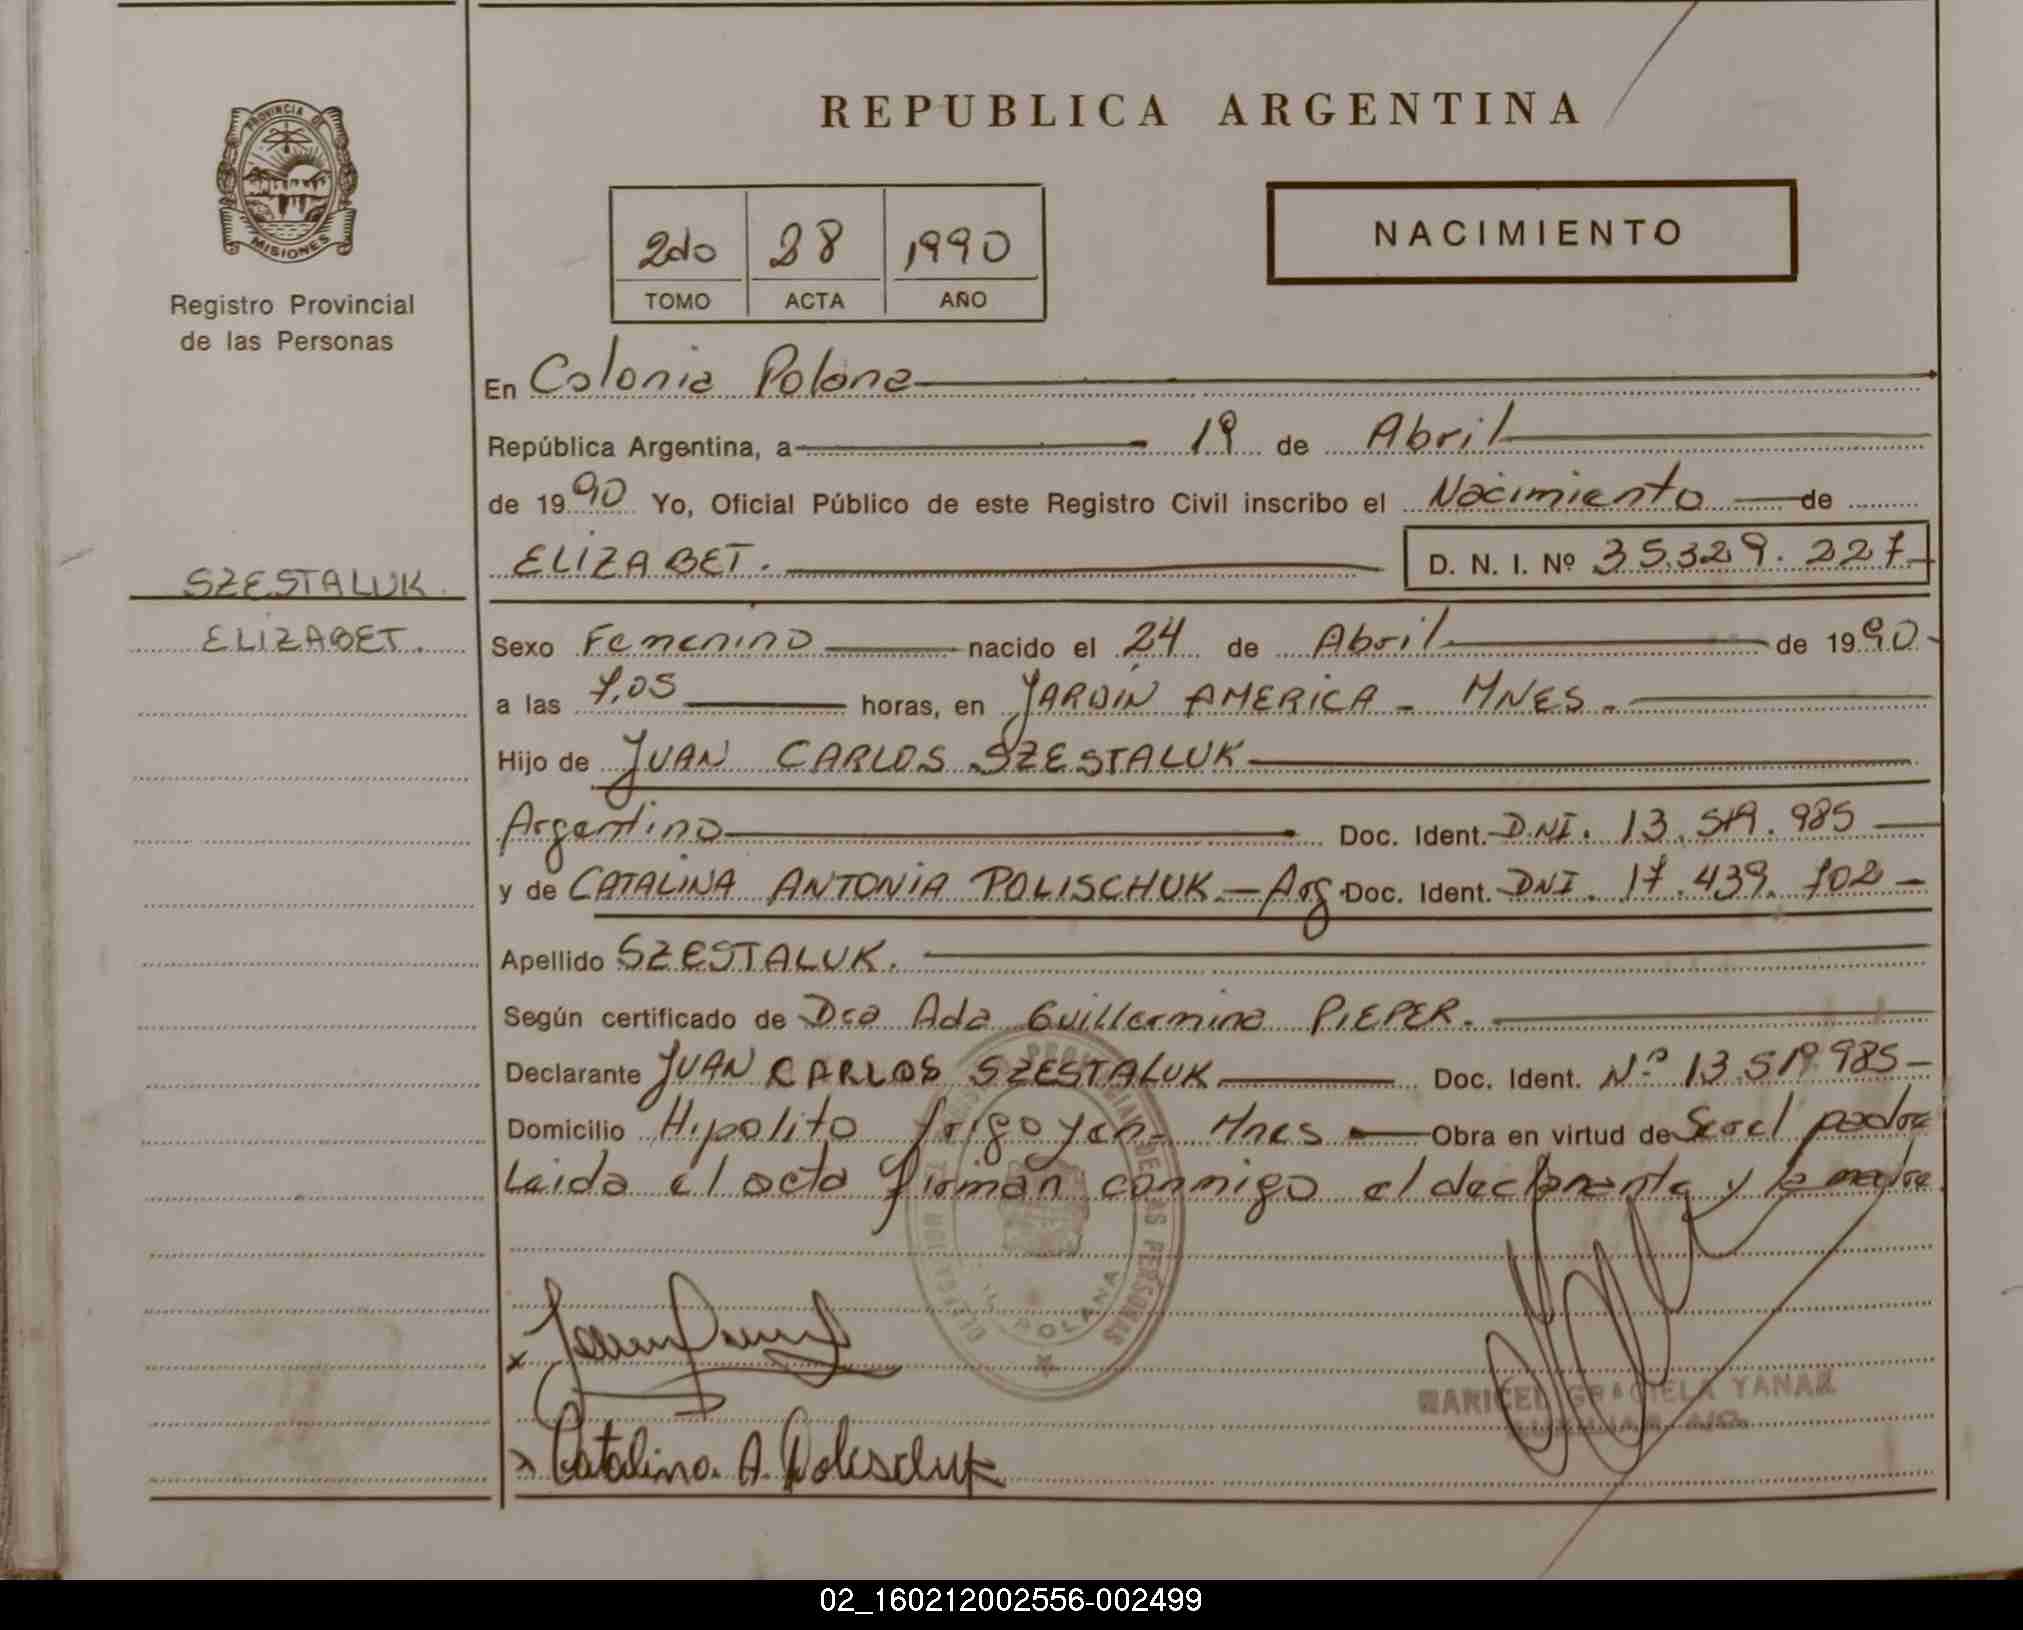 REPUBLICA ARGENTINA
PROVINCIA DE
MISIONES
Registro Provincial
de las Personas
2do 38 1990
TOMO ACTA AÑO
NACIMIENTO
En Colonia Polana
República Argentina, a 19 de Abril
de 1990 Yo, Oficial Público de este Registro Civil inscribo el Nacimiento de
ELIZABET. D. N. I. Nº 35.329.227
SZESTALUK
ELIZABET.
Sexo Femenino nacido el 24 de Abril de 1990
a las 7,05 horas, en JARDIN AMERICA - MNES.
Hijo de JUAN CARLOS SZESTALUK
Argentino Doc. Ident. DNI. 13.519.985
y de CATALINA ANTONIA POLISCHUK - Arg. Doc. Ident. DNI. 17.439.702
Apellido SZESTALUK.
Según certificado de Dra Ada Guillermina PIEPER.
Declarante JUAN CARLOS SZESTALUK Doc. Ident. Nº 13.519.985
Domicilio Hipolito Yrigoyen - Mnes Obra en virtud de Ser el padre
Leida el acta firman conmigo el declarante y la madre
POLANA
MARICEL GRACIELA YANAR
x Catalina. A. Polischuk
02_160212002556-002499